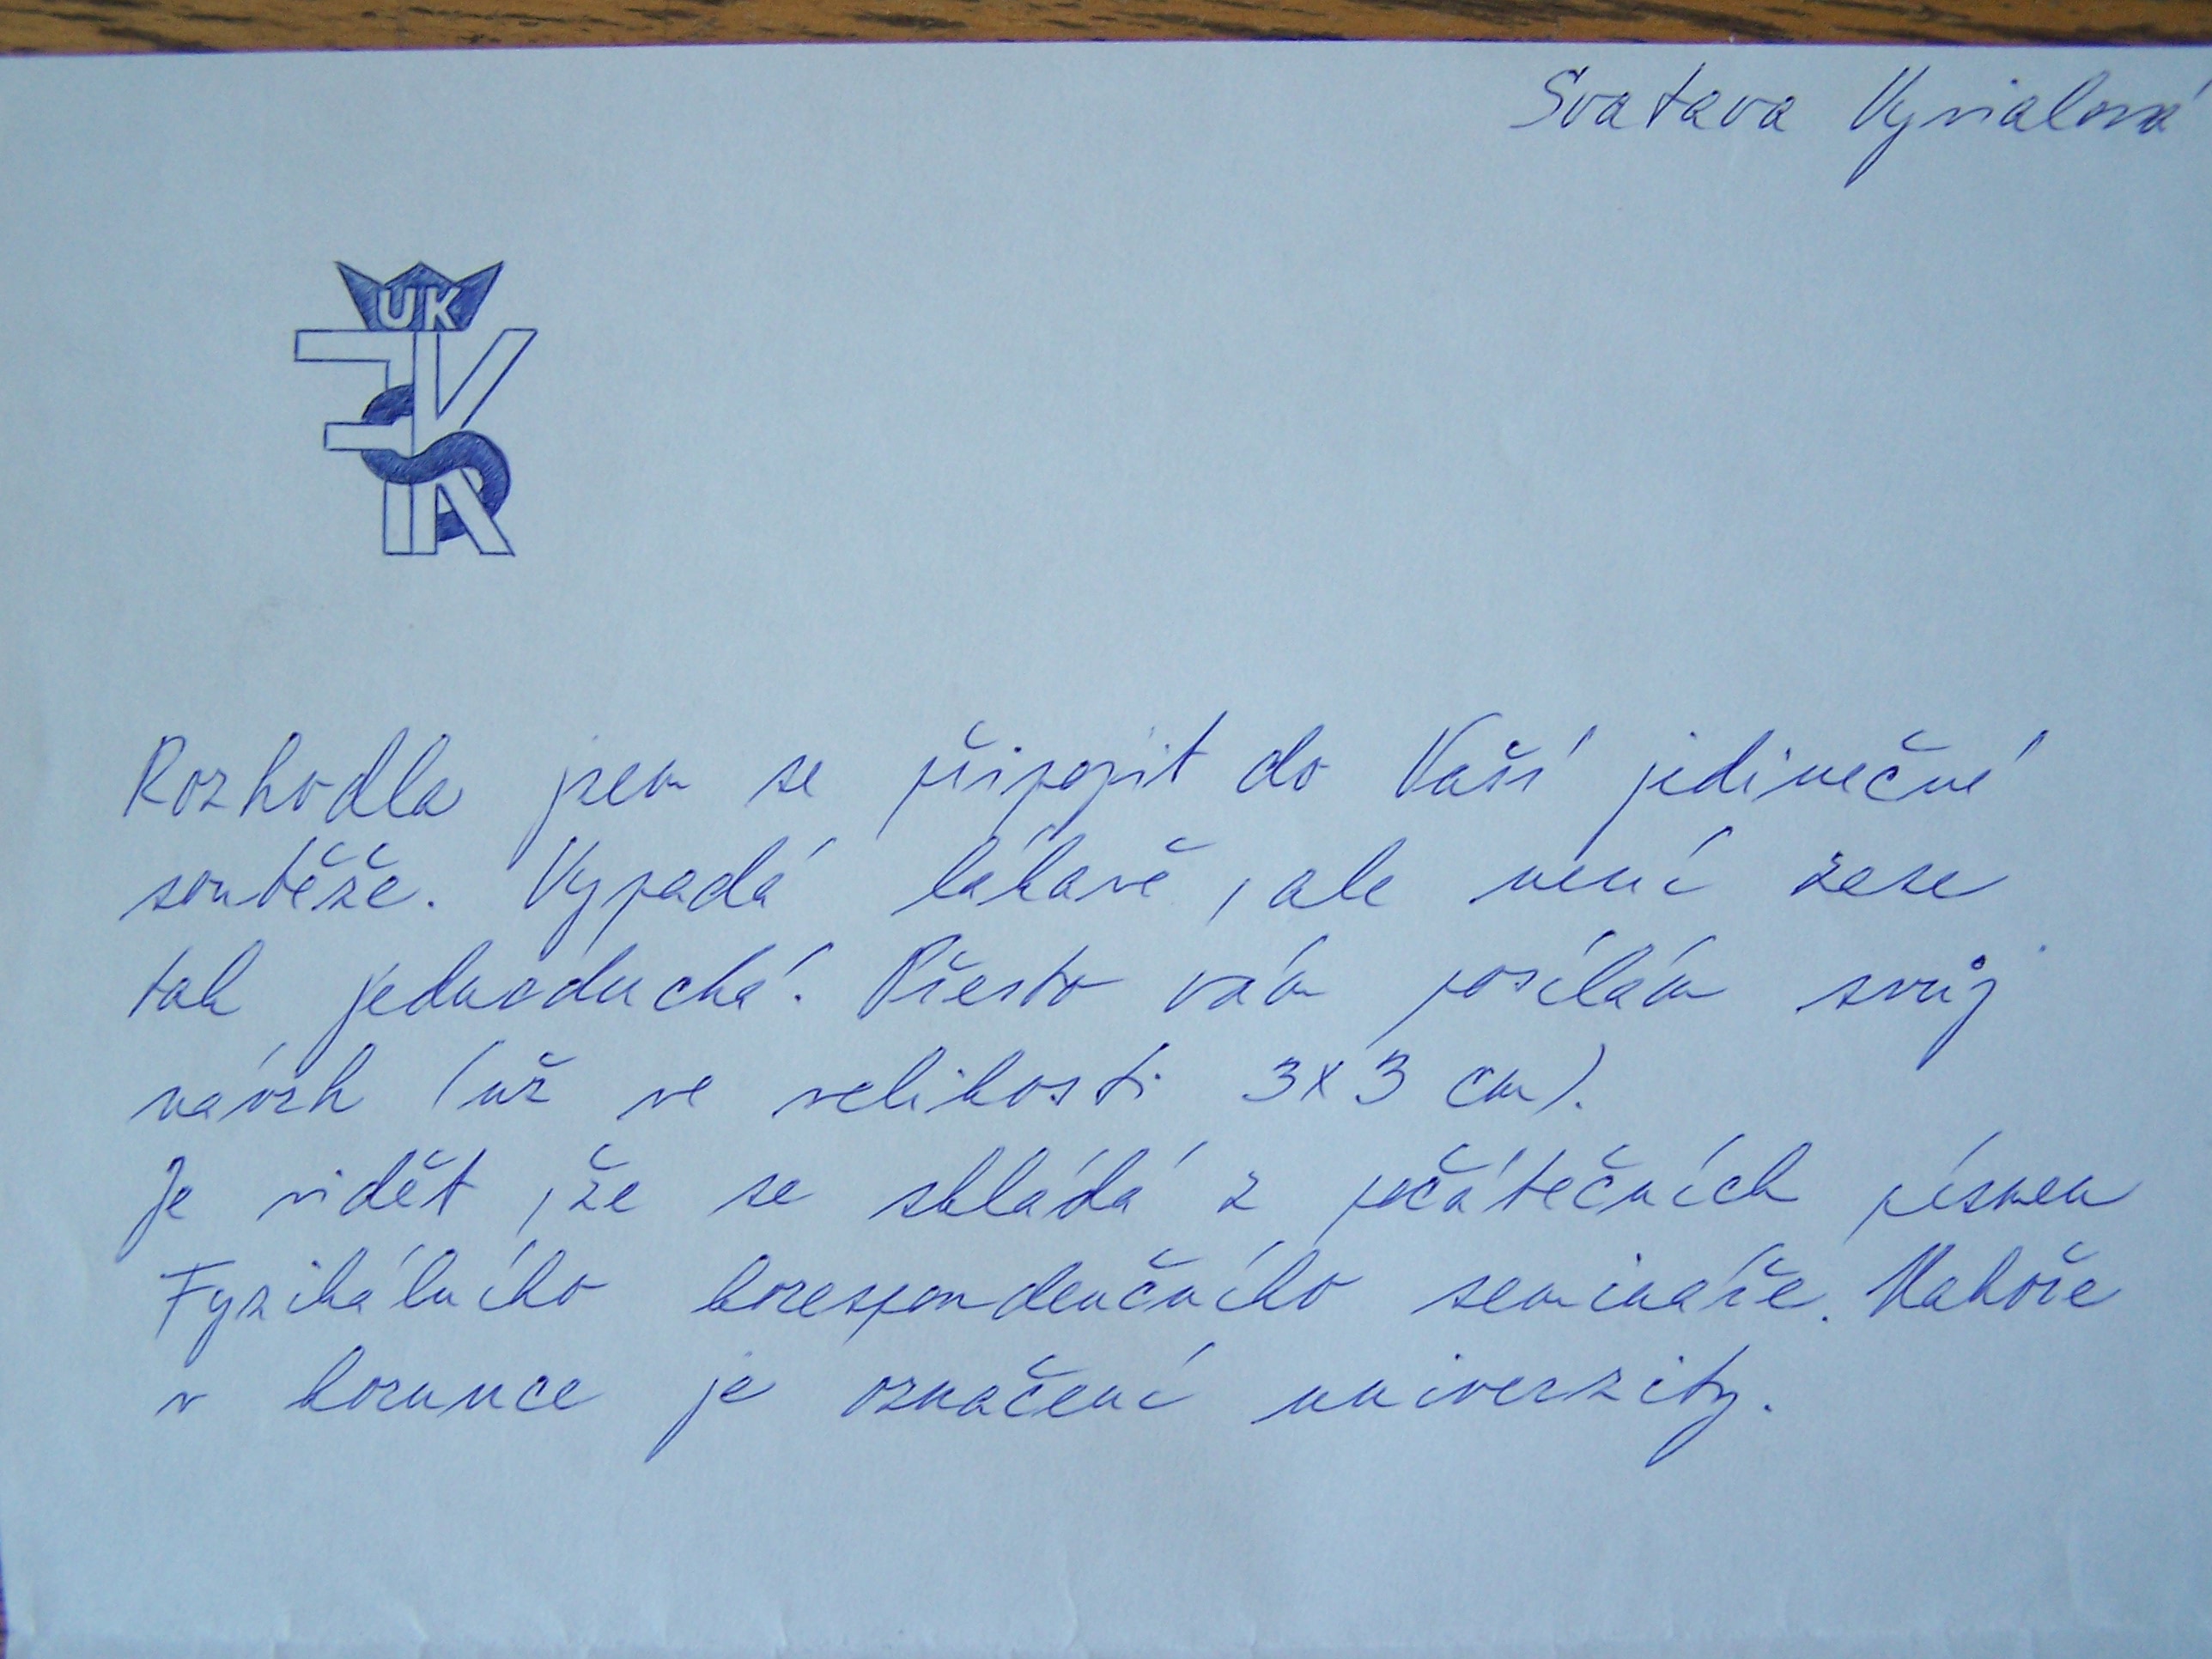 Svatava Vyvialová
UK
FKS
Rozhodla jsem se připojit do Vaší jedinečné
soutěže. Vypadá lákavě, ale není zase
tak jednoduchá. Přesto vám posílám svůj
návrh (už ve velikosti 3x3 cm).
Je vidět, že se skládá z počátečních písmen
Fyzikálního korespondenčního semináře. Nahoře
v korunce je označení univerzity.